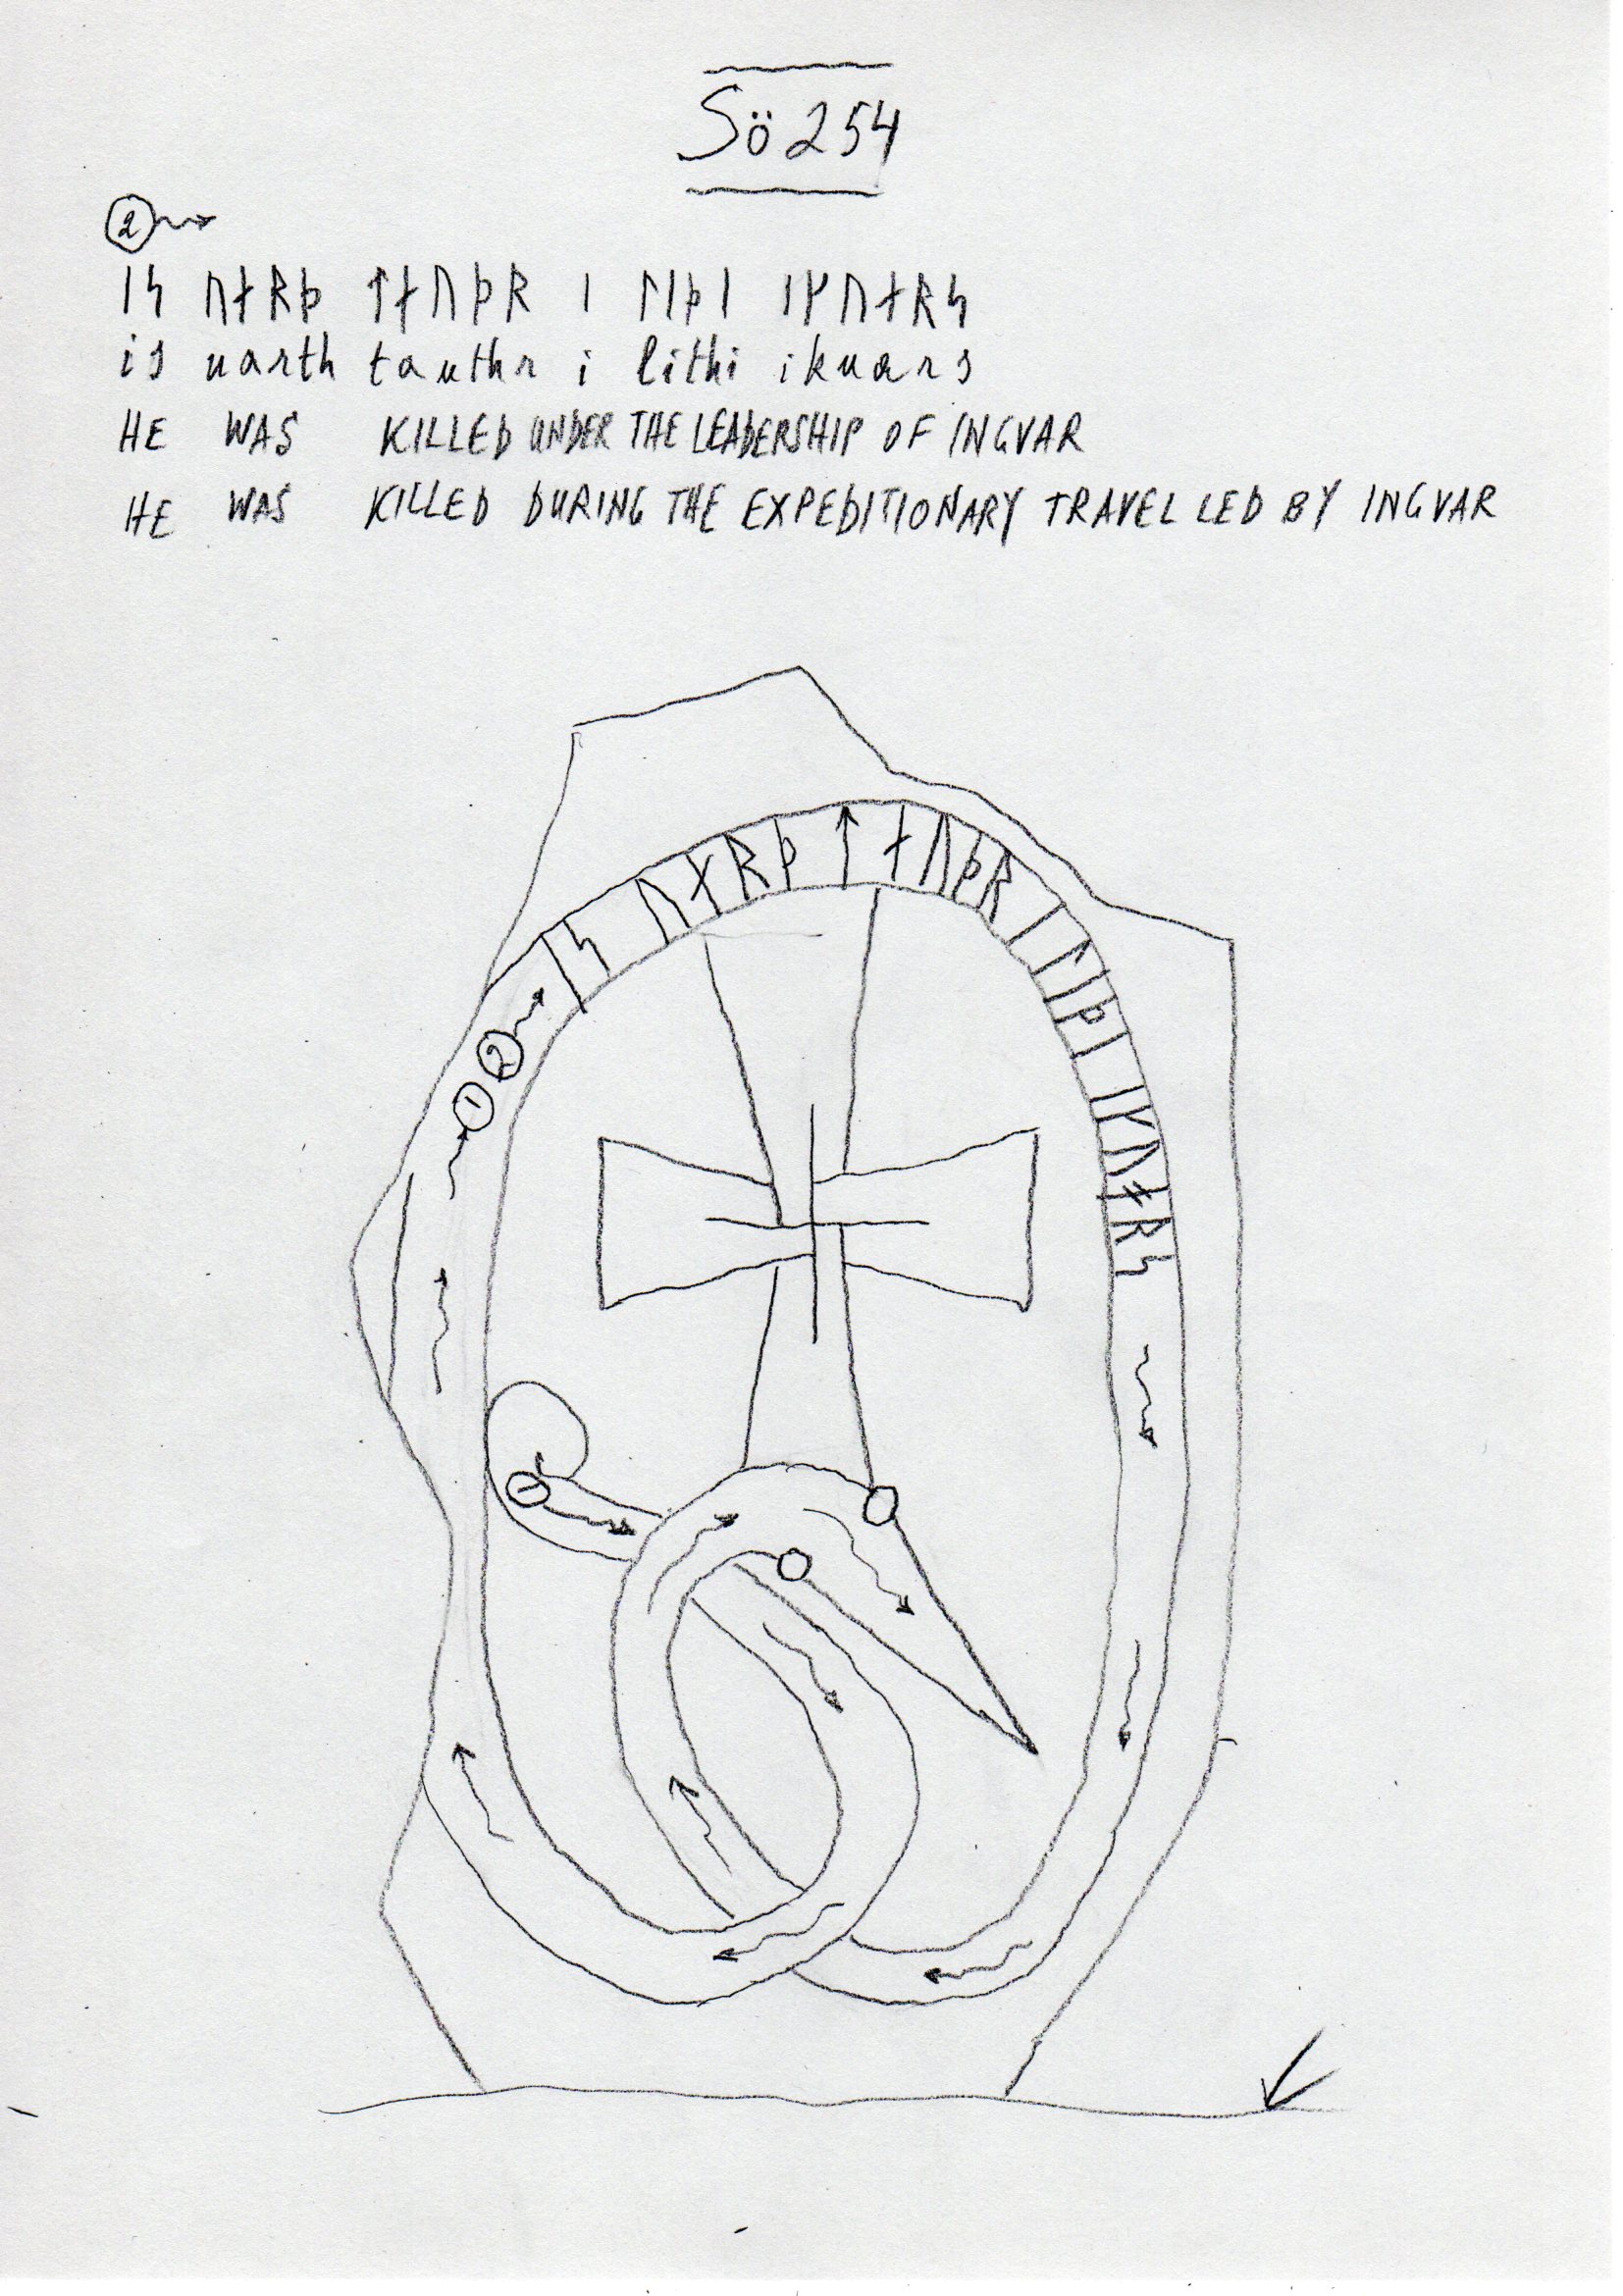 Sö 254
2
ᛁᛋ ᚢᛅᚱᚦ ᛏᛅᚢᚦᚱ ᛁ ᛚᛁᚦᛁ ᛁᚴᚢᛅᚱᛋ
is uarth tauthr i lithi ikuars
HE WAS KILLED UNDER THE LEADERSHIP OF INGVAR
HE WAS KILLED DURING THE EXPEDITIONARY TRAVEL LED BY INGVAR
ᛁᛋ ᚢᛅᚱᚦ ᛏᛅᚢᚦᚱ ᛁ ᛚᛁᚦᛁ ᛁᚴᚢᛅᚱᛋ
2
1
1